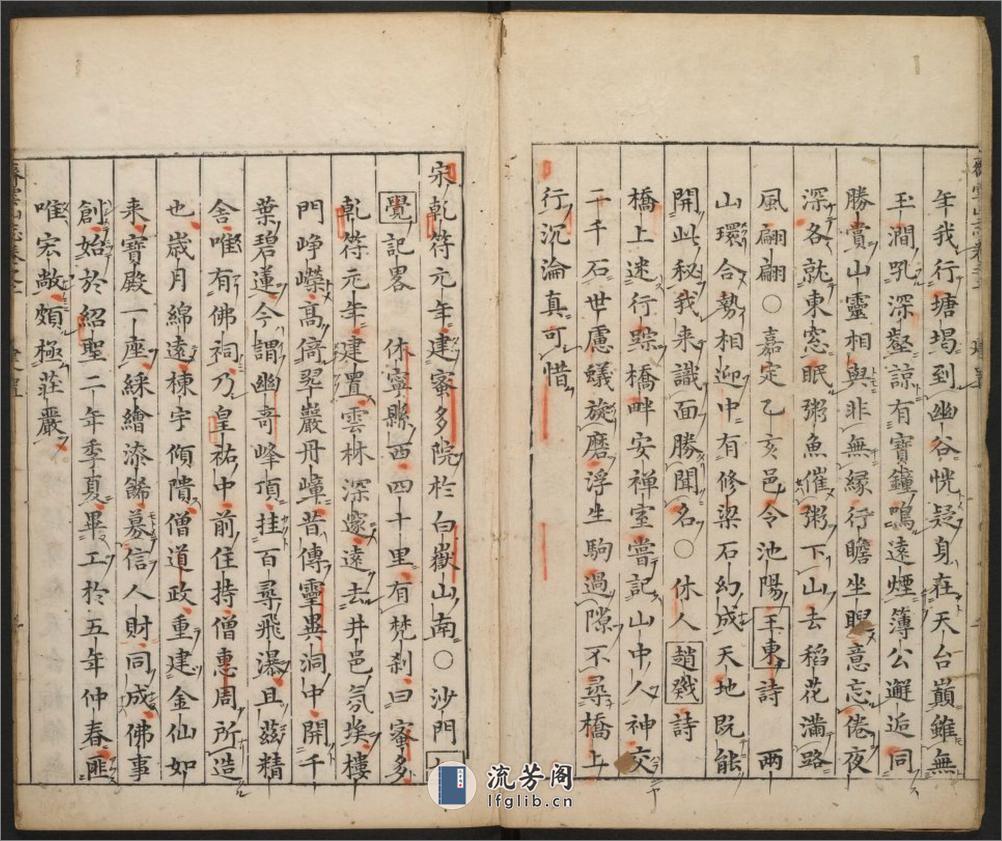 年我行塘堨到幽谷恍疑身在天台巔雖無
玉澗吼深壑諒有寶鐘鳴遠煙簿公邂逅同
勝賞山靈相與非無縁行瞻坐睨意忘倦夜
深各就東窓眠粥魚催粥下山去稻花滿路
風翩翩○嘉定乙亥邑令池陽王東詩　兩
山環合勢相迎中有修梁石幻成天地既能
開此秘我来識面勝聞名○休人趙戣詩
橋上迷行跡橋畔安禅室嘗記山中人神交
二千石世慮蟻旋磨浮生駒過隙不尋橋上
行沉淪真可惜
宋乾符元年建蜜多院於白嶽山南○沙門
覺記畧　休寧縣西四十里有梵刹曰蜜多
乾符元年建置雲林深邃遠去井邑氛埃樓
門崢嶸高倚翠巖丹嶂昔傳靈異洞中開千
葉碧蓮今謂幽奇峰頂挂百尋飛瀑且茲精
舎唯有佛祠乃皇祐中前住持僧惠周所造
也歳月綿遠棟宇傾隤僧道政重建金仙如
来寶殿一座綵繪添餙募信人財同成佛事
創始於紹聖二年季夏畢工於五年仲春匪
唯宏敞頗極莊嚴
流芳阁
lfglib.cn